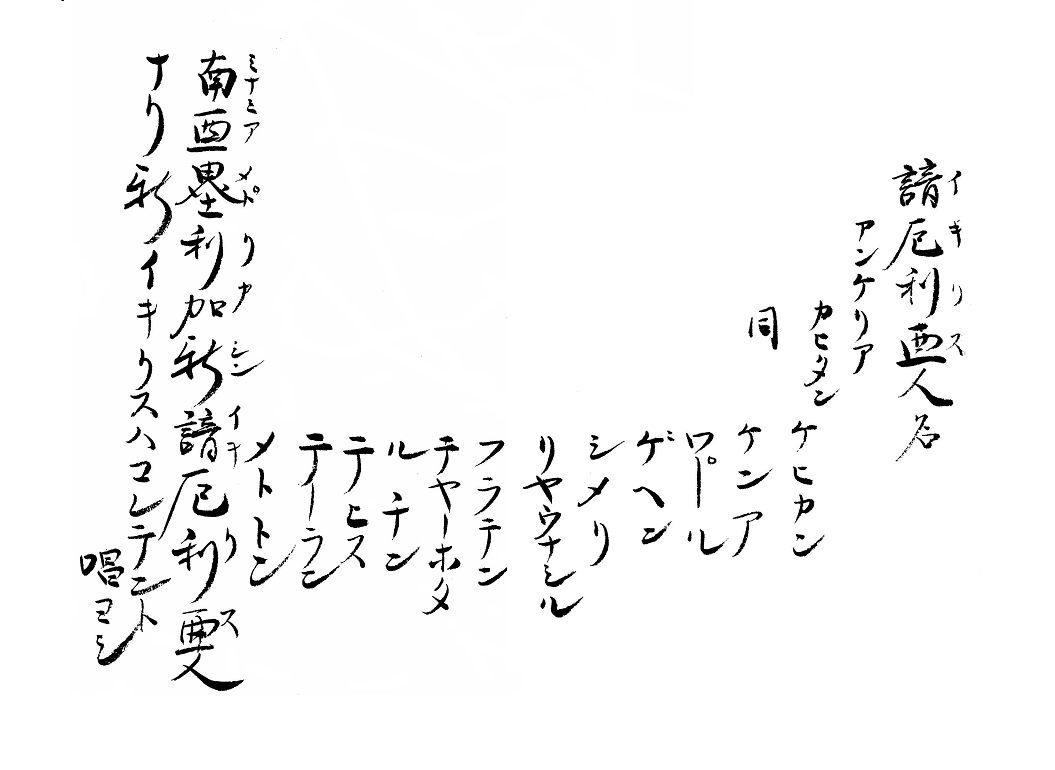 諳厄利亜人名
イキリス
アンケリア
カヒタン
ケヒカン
同
ケンア
ロ゜ール
ゲヘン
シメリ
リヤウナシル
フラテン
チヤーホタ
ルチン
テヒス
テーラン
メトトン
南亜墨利加新諳厄利亜人
ミナミアメリカシンイキリス
ナリ新イキリスハコンテント
唱ヨシ